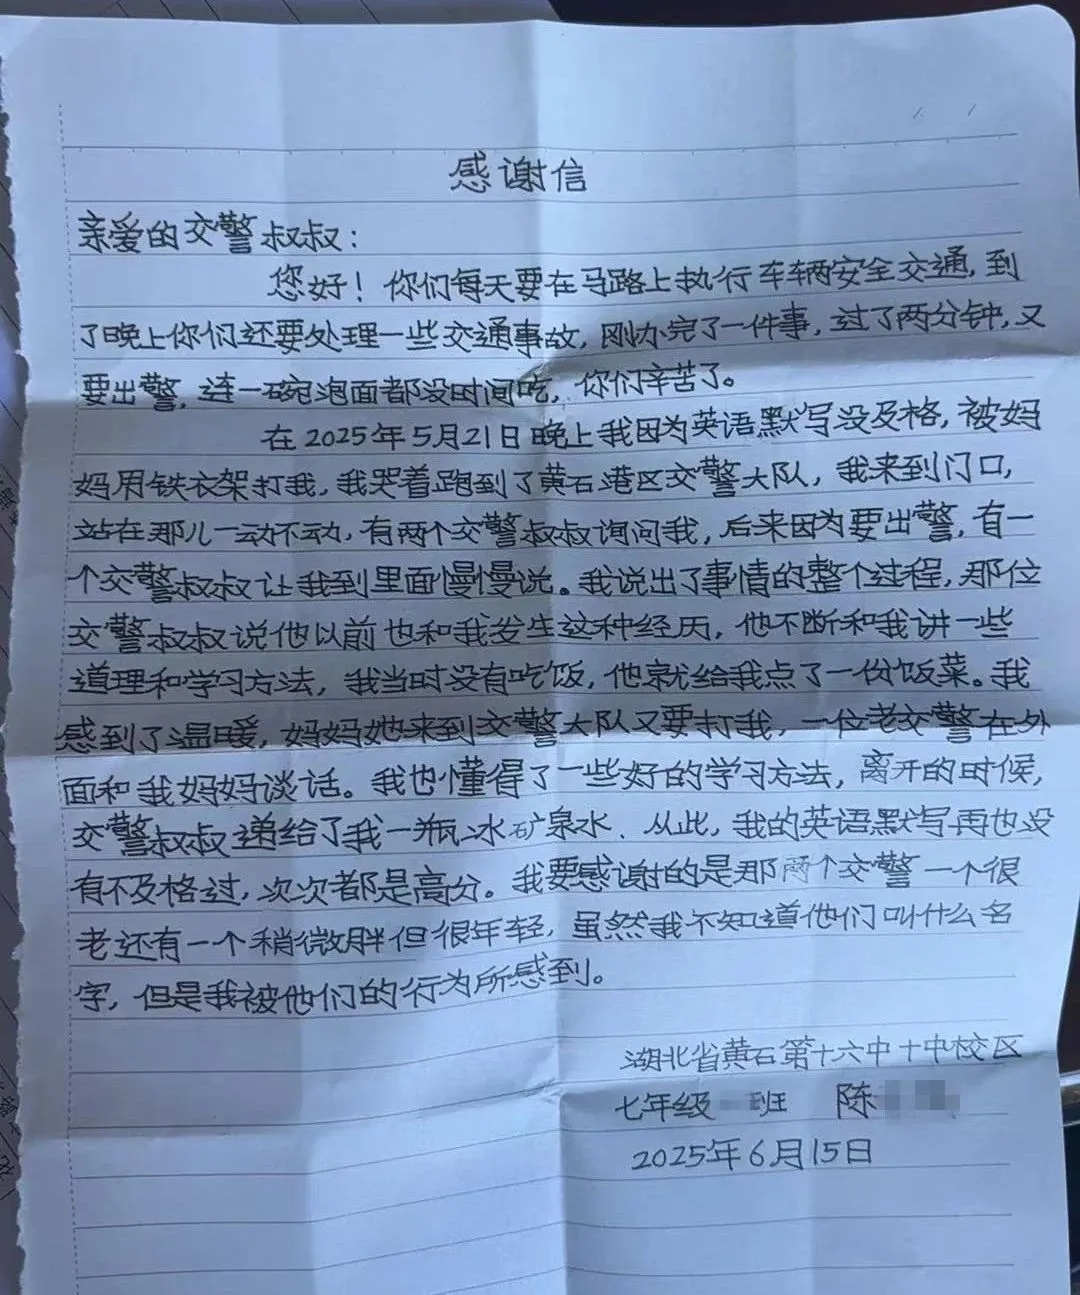 感谢信
亲爱的交警叔叔：
您好！你们每天要在马路上执行车辆安全交通，到
了晚上你们还要处理一些交通事故，刚办完了一件事，过了两分钟，又
要出警，连一碗泡面都没时间吃，你们辛苦了。
在2025年5月21日晚上我因为英语默写没及格，被妈
妈用铁衣架打我，我哭着跑到了黄石港区交警大队，我来到门口，
站在那儿一动不动，有两个交警叔叔询问我，后来因为要出警，有一
个交警叔叔让我到里面慢慢说。我说出了事情的整个过程，那位
交警叔叔说他以前也和我发生这种经历，他不断和我讲一些
道理和学习方法，我当时没有吃饭，他就给我点了一份饭菜。我
感到了温暖，妈妈她来到交警大队又要打我，一位老交警在外
面和我妈妈谈话。我也懂得了一些好的学习方法，离开的时候，
交警叔叔递给了我一瓶冰矿泉水、从此，我的英语默写再也没
有不及格过，次次都是高分。我要感谢的是那两个交警一个很
老还有一个稍微胖但很年轻，虽然我不知道他们叫什么名
字，但是我被他们的行为所感到。
湖北省黄石第十六中十中校区
七年级 班 陈
2025年6月15日